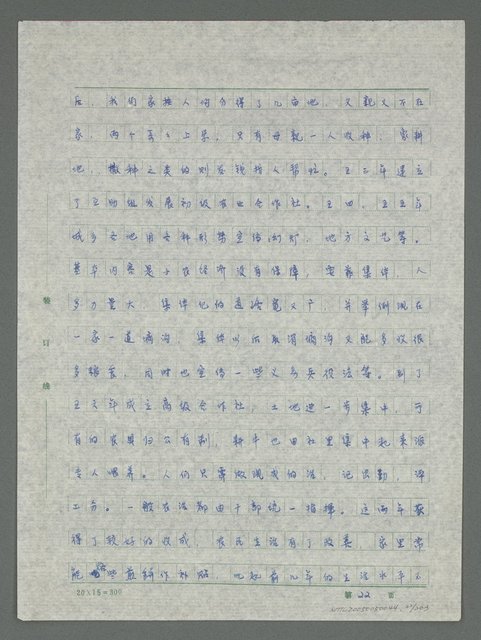 后，我们家按人均分得了几亩地，父亲又不在
家，两个哥哥上学，只有母亲一人收种，家耕
地，撒种之类的则花钱指人帮忙。五三年建立
了互助组发展初级农业合作社。五四、五五年
城乡各地用各种形式宣传幻灯，地方文艺等。
基本内容是小农经济没有保障，要靠集体，人
多力量大，集体化的道路宽又广，并举例现在
一家一道墒沟，集体以后取消墒沟又能多收很
多粮食，同时也宣传一些义务兵役法等。到了
五六年成立高级合作社，土地进一步集中，所
有的农具归公有制，耕牛也由社里集中起来派
专人喂养。人们只需做现成的活，记出勤，评
工分。一般农活都由干部统一指挥。这两年获
得了较好的收成，农民生活有了改善，家里常
能 些煎饼作补贴，比起前几年的生活水平不
装
订
线
20×15=300
第 22 页